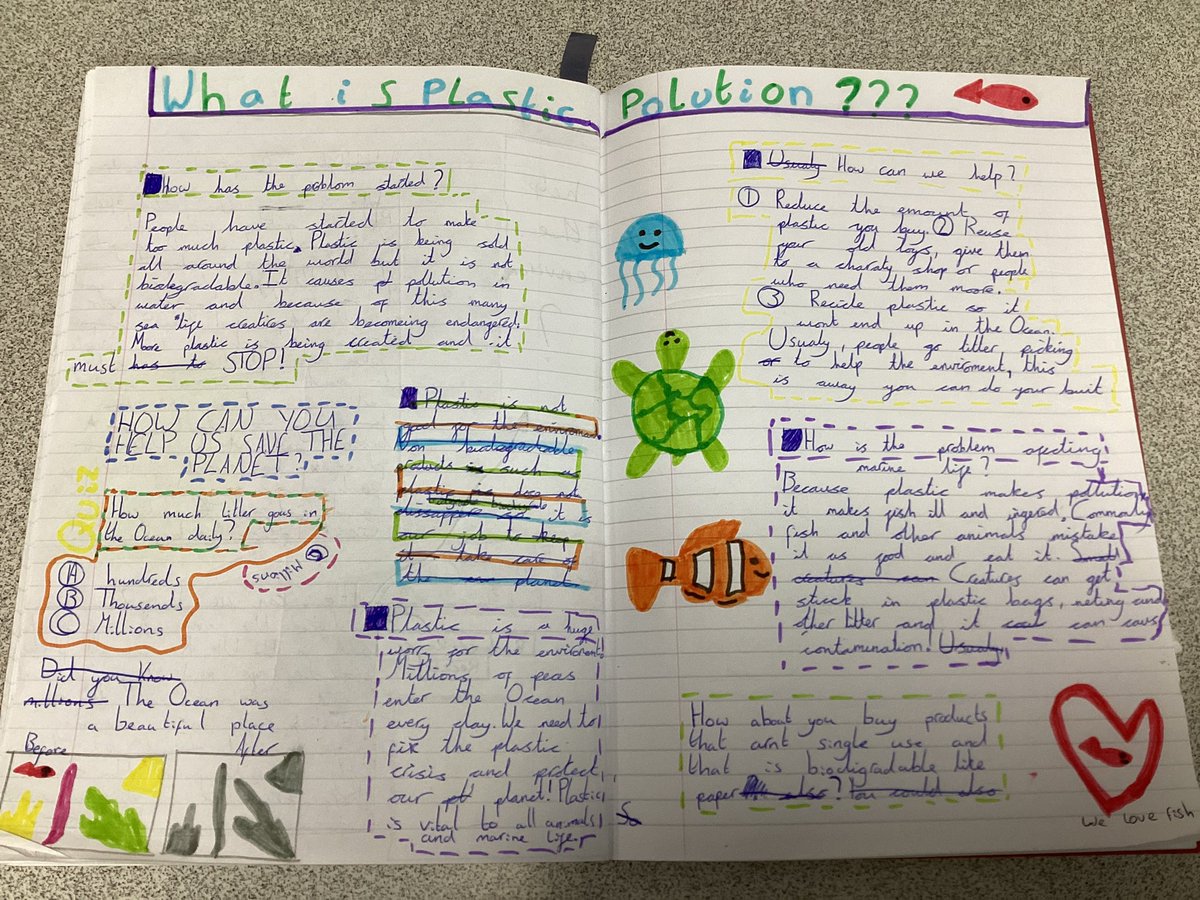 What is Plastic Polution ???
How has the problom started?
People have started to make
to much plastic. Plastic is being sold
all around the world but it is not
biodegradable. It causes pollution in
water and because of this many
sea life creatires are becomeing endangered.
More plastic is being created and it
must has to STOP!
HOW CAN YOU
HELP US SAVE THE
PLANET?
Quiz
How much litter goas in
the Ocean daily?
A hundreds
B Thousends
C Millions
C Millons
Did you know
millions The Ocean was
a beautiful place
Before After
Plastic is not
good for the enviroment
Non biodegradable
products such as
plastic does not
dissappear so it is
our job to keep
it take care of
the planet
Plastic is a huge
worry for the enviroment!
Millions of peas
enter the Ocean
every day. We need to
fix the plastic
crisis and protect
our planet! Plastic
is vital to all animals
and marine life.
So
Usualy How can we help?
1 Reduce the emount of
plastic you buy. 2 Reuse
your old toys, give them
to a charaty shop or people
who need them moore.
3 Recicle plastic so it
wont end up in the Ocean.
Usualy, people go litter picking
or to help the enviroment, this
is away you can do your buit
How is the problem afecting
marine life?
Because plastic makes pollution
it makes fish ill and ingered. Commonly
fish and other animals mistake
it as food and eat it. Small
creatures can Creatures can get
stuck in plastic bags, neting and
other litter and it can caus
contamination. Usualy
How about you buy products
that arnt single use and
that is biodigradable like
paper also? You could also
We love fish